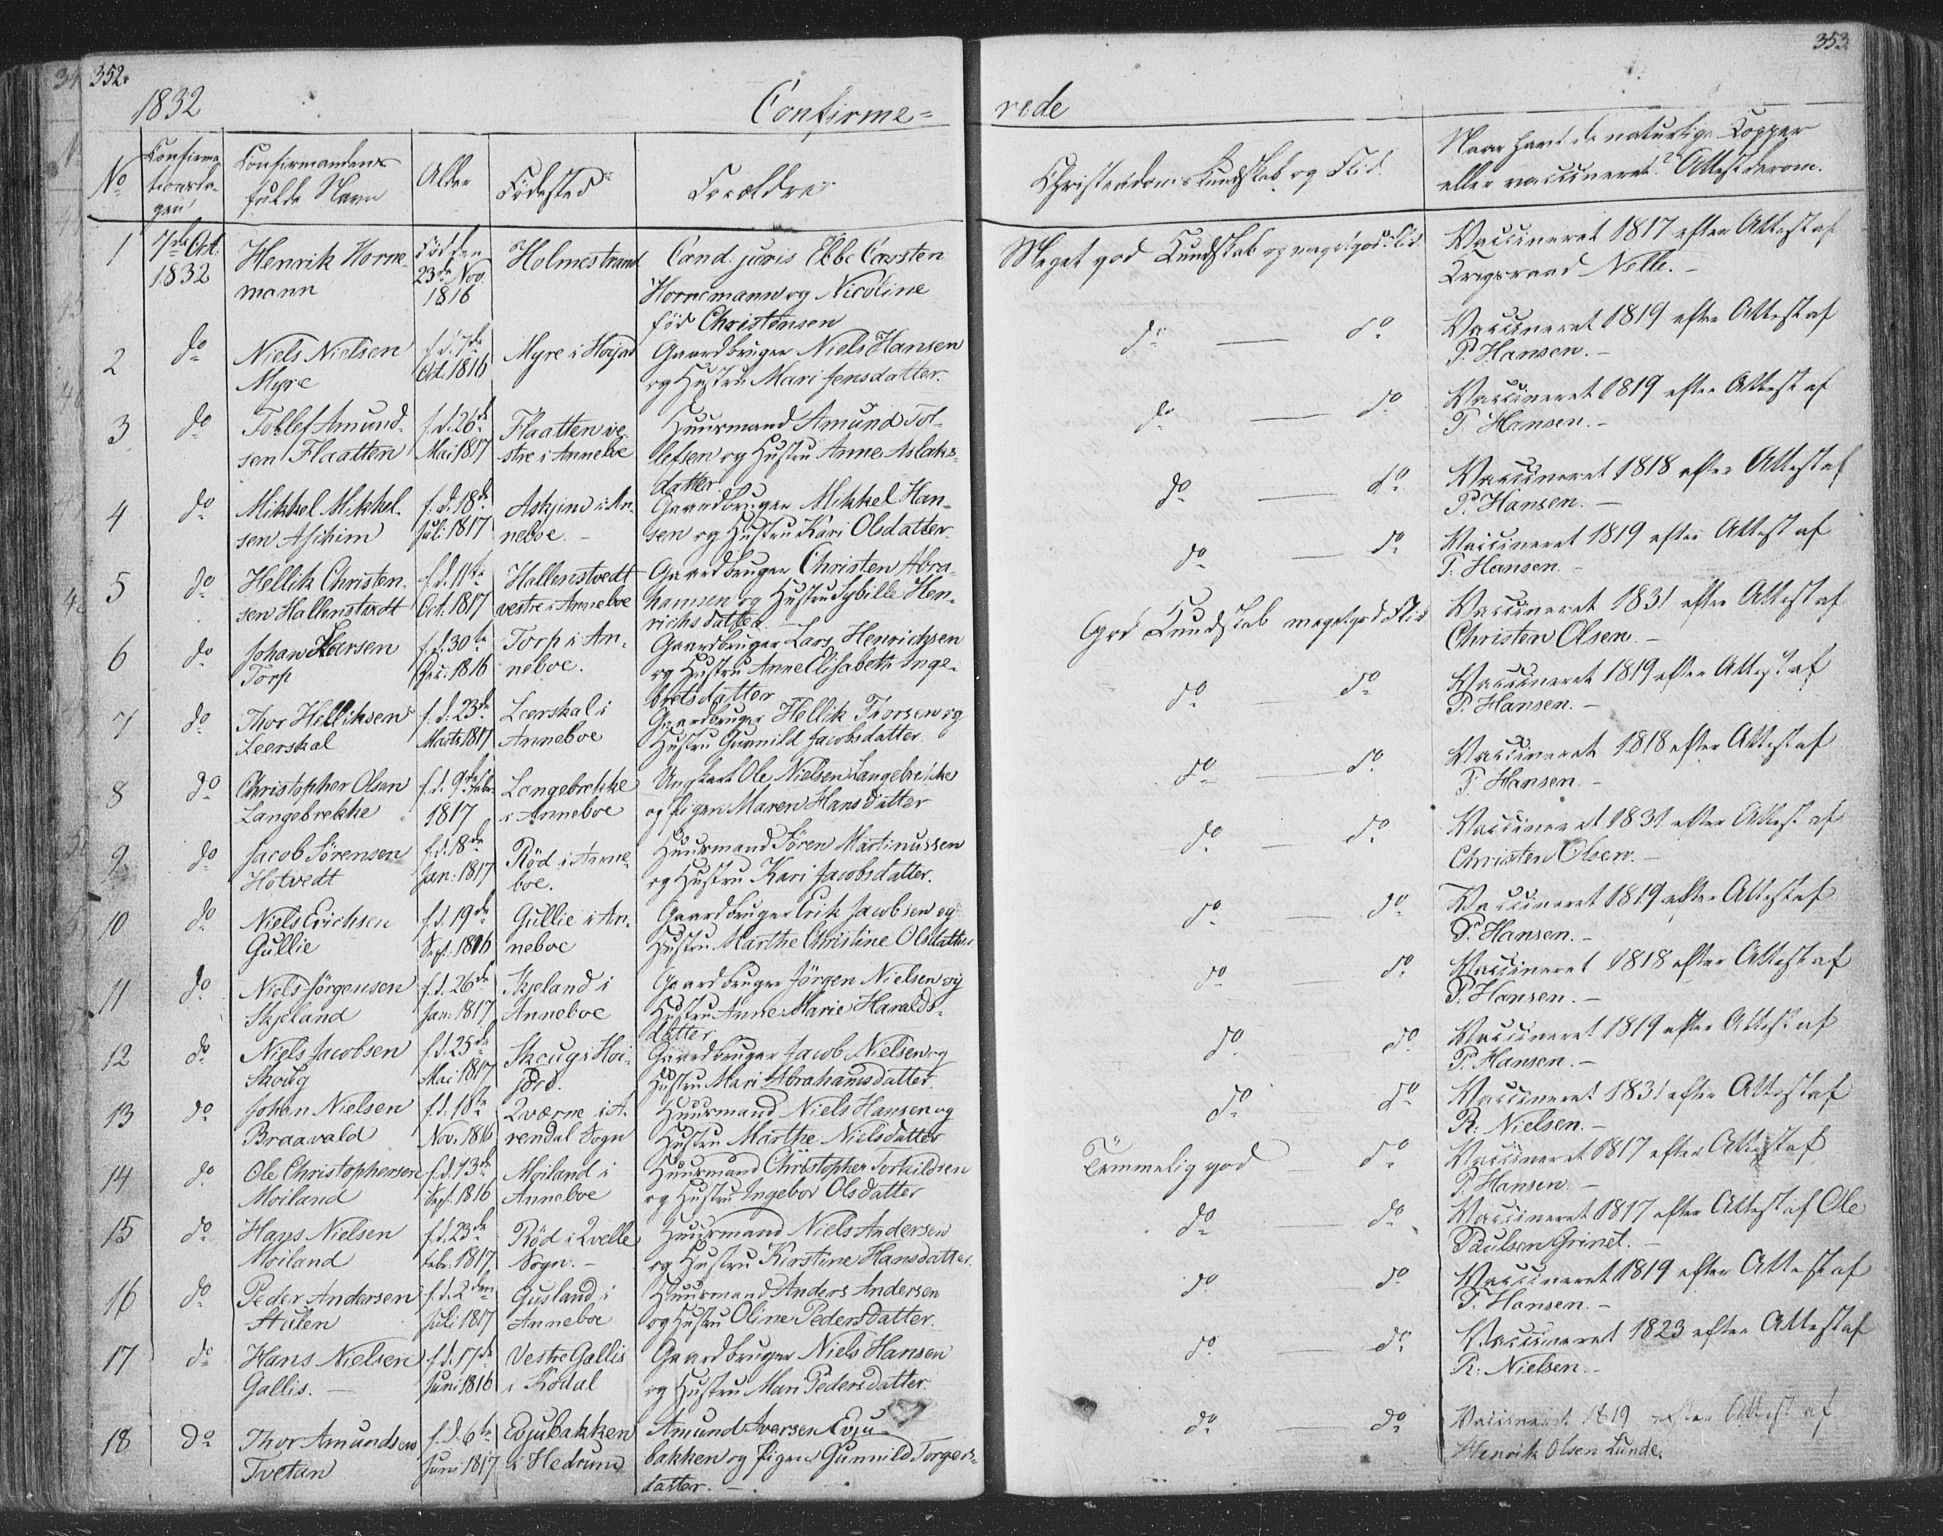 352.
1832
Confirme=
No
Confirma-
tionsda-
gen
Confirmandens
fulde Navn
Alder
Födested
Forældre
1
7de Oct.
1832
Henrik Horne-
mann
Född den
23de Nov.
1816
Holmestrand
Cand: juris Ebbe Carsten
Hornemann og Nicoline
föd Christensen
2
do
Niels Nielsen
Myre
f. d. 7de
Oct. 1816
Myre i Höijord
Gaardbruger Niels Hansen
og Hustru Mari Jensdatter.
3
do
Tollef Amund-
sen Flaatten
f. d. 26de
Mai 1817
Flaatten ve-
stre i Anneboe
Huusmand Amund Tol-
lefsen og Hustru Anne Aslaks-
datter
4
do
Mikkel Mikkel-
sen Aschim
f. d. 18de
Juli 1817
Askjim i An-
neboe. -
Gaardbruger Mikkel Han-
sen og Hustru Kari Olsdatter.
5
do
Hellik Christen-
sen Hallenstvedt
f. d. 11te
Oct. 1817
Hallenstvedt
vestre i Anneboe
Gaardbruger Christen Abra-
hamsen og Hustru Sybille Hen-
richsdatter
6
do
Johan Larsen
Torp
f. d. 30te
Dec. 1816
Torp i An-
neboe.
Gaardbruger Lars Henrichsen
og Hustru Anne Elisabeth Inge-
bretsdatter
7
do
Thor Helliksen
Leerskal
f. d. 23de
Marts 1817
Leerskal i
Anneboe
Gaardbruger Hellik Thorsen og
Hustru Gunnild Jacobsdatter.
8
do
Christopher Olsen
Langebrekke
f. d. 9de Febr.
1817
Langebrekke
i Anneboe
Ungkarl Ole Nielsen Langebrekke
og Pigen Maren Hansdatter
9
do
Jacob Sörensen
Hotvedt
f. d. 18de
Jan. 1817
Röd i Anne-
boe.
Huusmand Sören Martinussen
og Hustru Kari Jacobsdatter.
10
do
Niels Erichsen
Gullie
f. d. 19de
Sept. 1816
Gullie i An-
neboe
Gaardbruger Erik Jacobsen og
Hustru Marthe Christine Olsdatter
11
do
Niels Jörgensen
Skjeland
f. d. 26de
Jan. 1817
Skjeland i
Anneboe
Gaardbruger Jörgen Nielsen og
Hustru Anne Marie Haralds-
datter
12
do
Niels Jacobsen
Skoug
f. d. 25de
Mai 1817
Skoug i Höi-
jord.
Gaardbruger Jacob Nielsen og
Hustru Mari Abrahamsdatter.
13
do
Johan Nielsen
Braavald
f. d. 18de
Nov. 1816
Qværne i A-
rendal Sogn
Huusmand Niels Hansen og
Hustru Marthe Nielsdatter
14
do
Ole Christophersen
Moiland
f. d. 13de
Sept. 1816
Moiland i
Anneboe
Huusmand Christopher Torkildsen
og Hustru Ingebor Olsdatter
15
do
Hans Nielsen
Moiland
f. d. 23de
Febr. 1817
Röd i Qvelle
Sogn. -
Huusmand Niels Andersen
og Hustru Kirstine Hansdatter.
16
do
Peder Andersen
Stulen
f. d. 2den
Juli 1817
Gusland i
Anneboe
Huusmand Anders Andersen
og Hustru Oline Pedersdatter.
17
do
Hans Nielsen
Gallis. -
f. d. 17de
Juni 1816
Vestre Gallis
i Kodal
Gaardbruger Niels Hansen
og Hustru Mari Pedersdatter.
18
do
Thor Amundsen
Tvetan
f. d. 6te
Juni 1817
Evjubakken
i Hedrum
Amund Iversen Evju-
bakken og Pigen Gunnild Torgers-
datter. -
353
rede
Christendoms Kundskab og Flid.
Naar havt de naturlige Kopper
eller vaccineret? Attest derom.
Meget god Kundskab og meget god Flid
Vaccineret 1817 efter Attest af
Krigsraad Nelle. -
do - do
Vaccineret 1819 efter Attest af
P. Hansen. -
do - do
Vaccineret 1819 efter Attest af
P. Hansen. -
do - do
Vaccineret 1818 efter Attest af
P. Hansen. -
do - do
Vaccineret 1819 efter Attest af
P. Hansen. -
God Kundskab meget god Flid
Vaccineret 1831 efter Attest af
Christen Olsen. -
do - do
Vaccineret 1819 efter Attest af
P. Hansen. -
do - do
Vaccineret 1818 efter Attest af
P. Hansen. -
do - do
Vaccineret 1831 efter Attest af
Christen Olsen. -
do - do
Vaccineret 1819 efter Attest af
P. Hansen. -
do - do
Vaccineret 1818 efter Attest af
P. Hansen. -
do - do
Vaccineret 1819 efter Attest af
P. Hansen. -
do - do
Vaccineret 1831 efter Attest af
R. Nielsen. -
Temmelig god - do
Vaccineret 1817 efter Attest af
P. Hansen. -
do - do
Vaccineret 1817 efter Attest af Ole
Paulsen Grinet. -
do - do
Vaccineret 1819 efter Attest af
P. Hansen. -
do - do
Vaccineret 1823 efter Attest af
R. Nielsen. -
do - do
Vaccineret 1819 efter Attest af
Henrik Olsen Lunde.